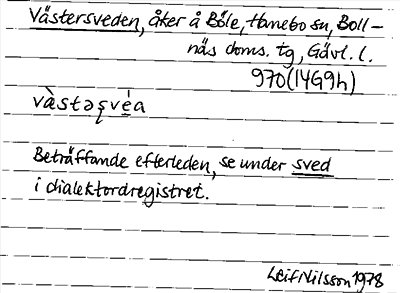 Västersveden, åker å Böle, Hanebo sn, Boll-
näs doms. tg, Gävl. l.
970(14G9h)
vàstəşvéa
Beträffande efterleden, se under sved
i dialektordregistret.
Leif Nilsson 1978